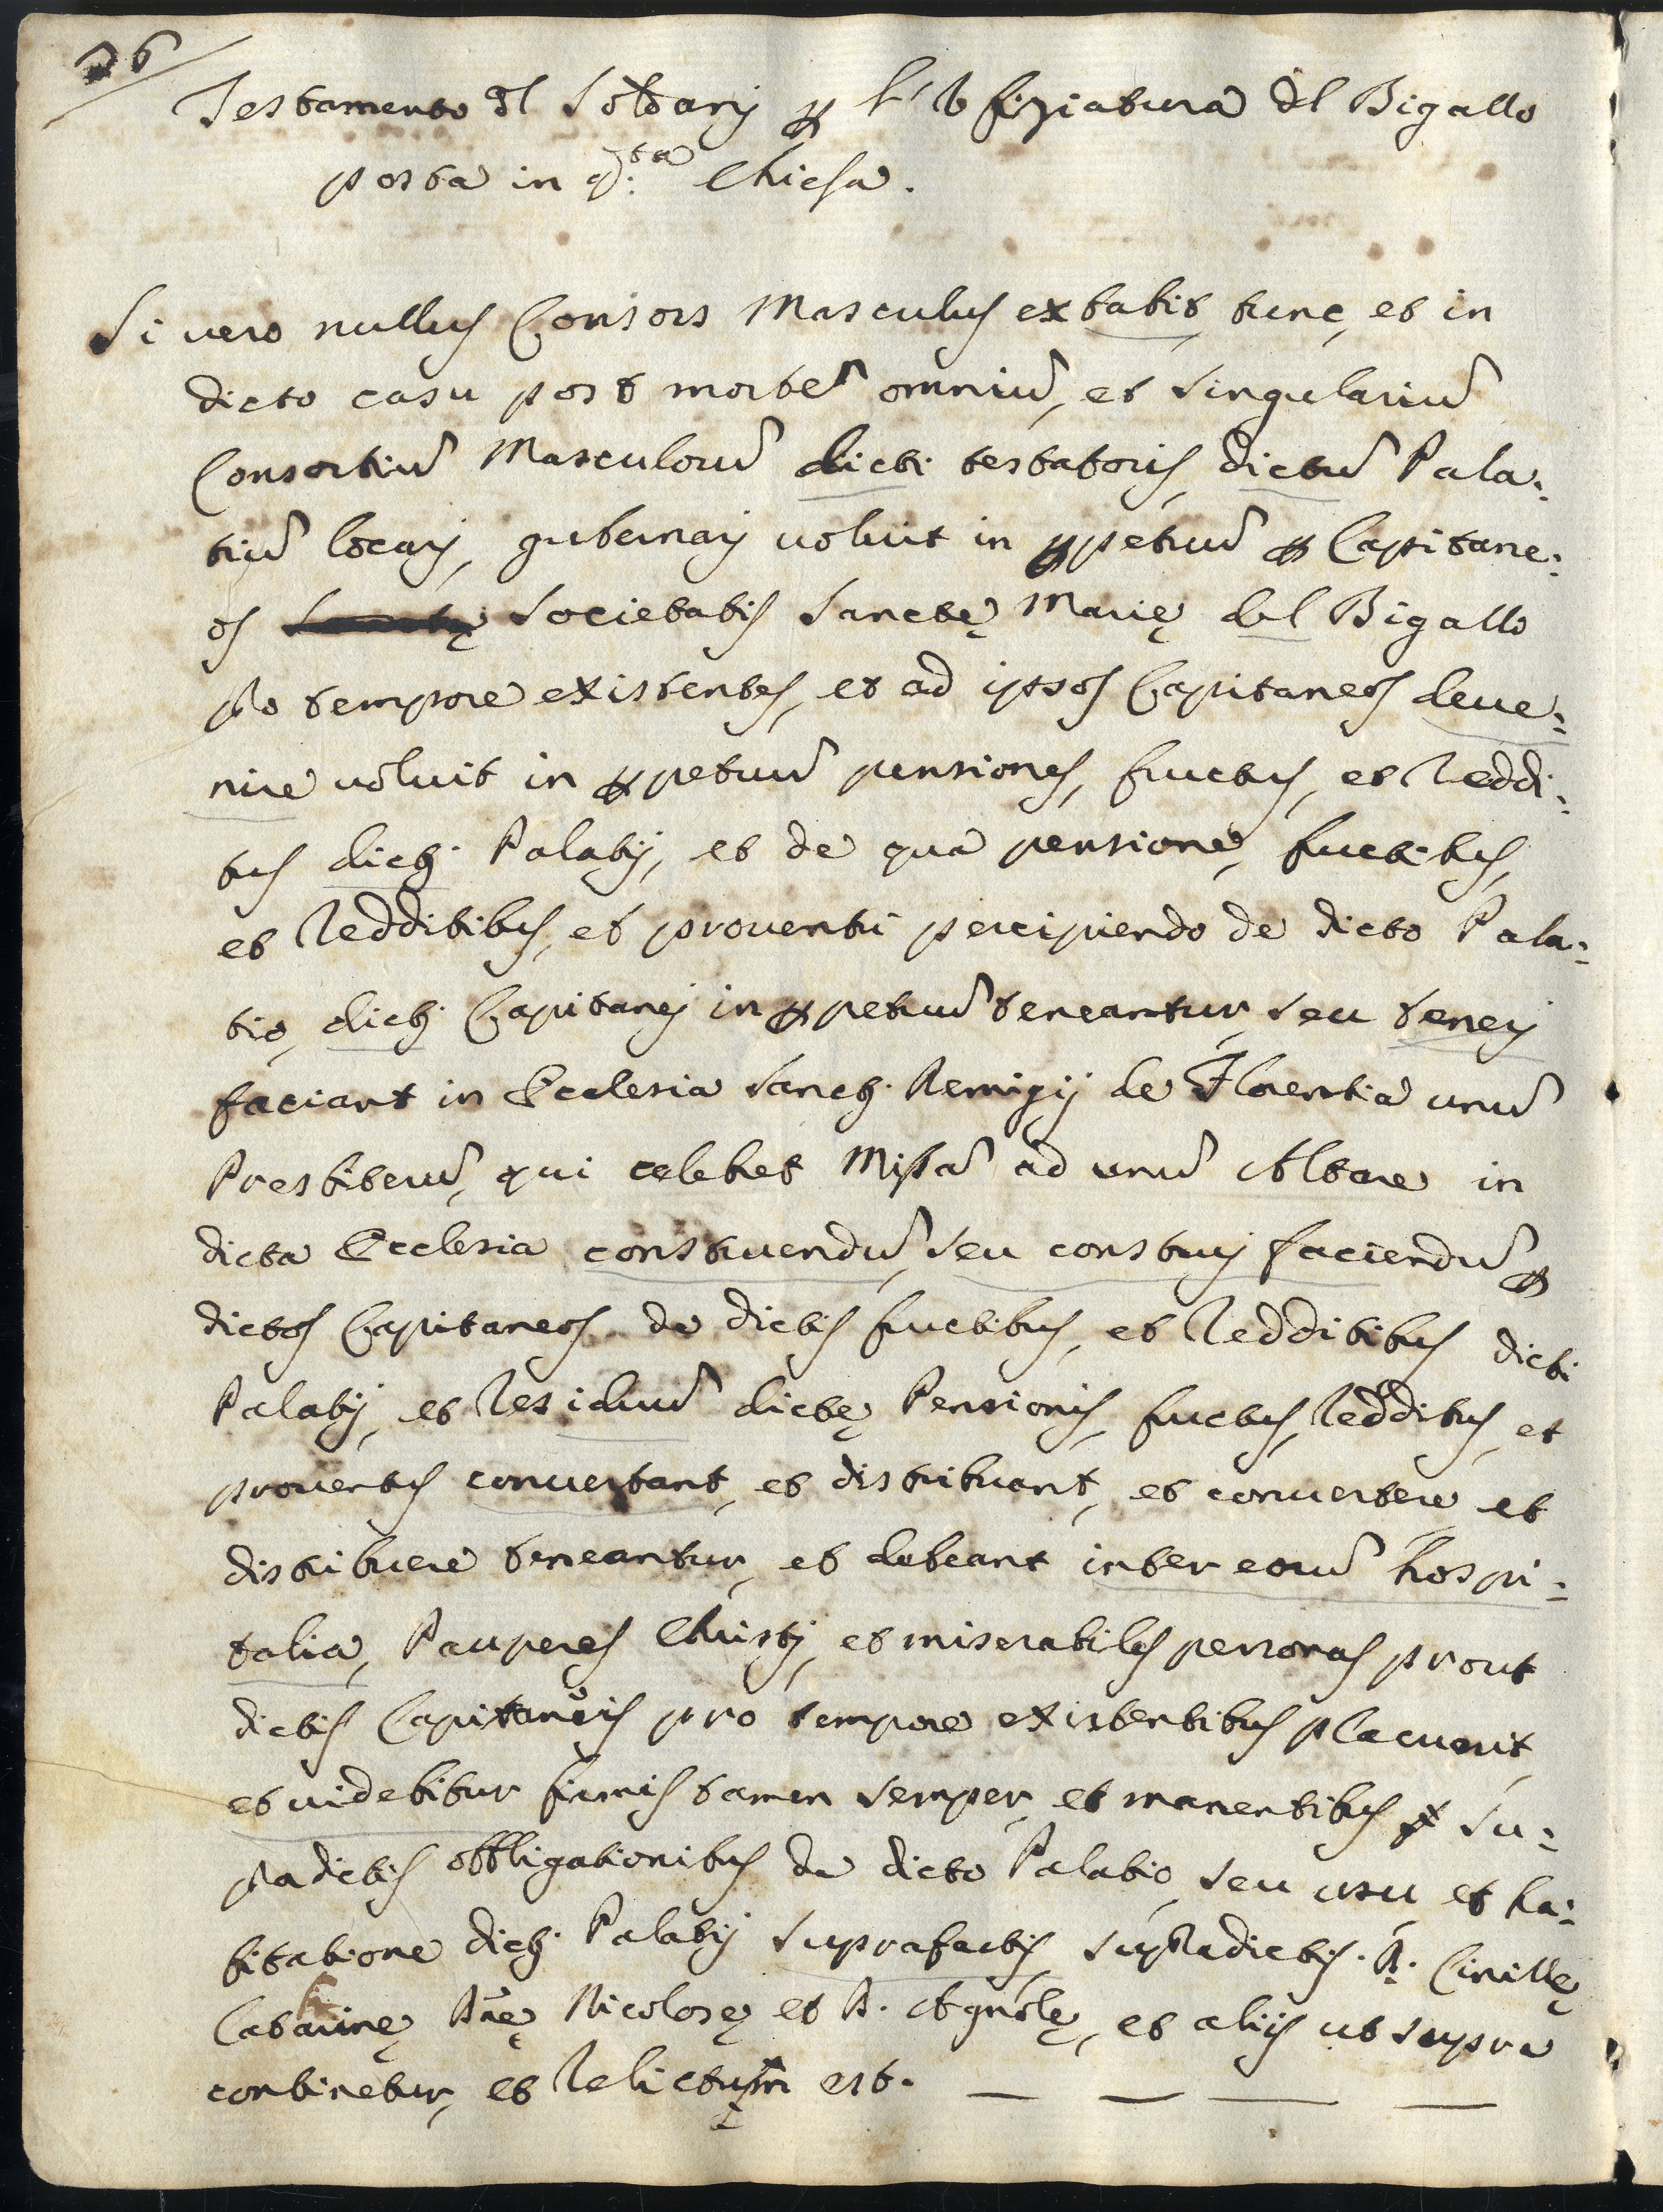 26
Testamento dl Soldarij p l'Vfiziatura del Bigallo
posta in q.ta Chiesa.
Si vero nullus Consors Masculus extabit tunc, et in
dicto casu post mortem̃ omniũ, et singulariũ
Consortiũ Masculorũ dicti testatoris, dictũ Pala:
tiũ locarj, gubernarj uoluit in ppetuũ p Capitane:
os Societatis Sanctę Marię del Bigallo
pro tempore existentes, et ad ipsos Capitaneos deue:
nire uoluit in ppetuũ pensiones, fructus, et reddi:
tus dicti Palatij, et de qua pensione, fructibus,
et redditibus, et prouentu percipiendo de dicto Pala:
tio, dicti Capitanej in ppetuũ teneantur, seu tenerj
faciant in Ecclesia Sancti Remigij de Florentia unũ
Presbiterũ, qui celebret Missã ad unũ Altare in
dicta Ecclesia construendũ, seu construj faciendũ p
dictos Capitaneos de dictis fructibus, et redditibus dicti
Palatij, et residuũ dictę Pensionis, fructus, redditus, et
prouentus conuertant, et distribuant, et conuertere et
distribuere teneantur, et debeant inter eorũ hospi:
talia, Pauperes Christj, et miserabiles personas prout
dictis Capitaneis pro tempore existentibus placuerit,
et uidebitur firmis tamen semper, et manentibus su:
pradictis obbligationibus de dicto Palatio, seu usu, et ha:
bitatione dicti Palatij suprafactis, supradictis. D. Cirillę
Catarinę Dnę Nicolosę et D. Agnolę, et alijs ut supra
continetur, et relictum est.